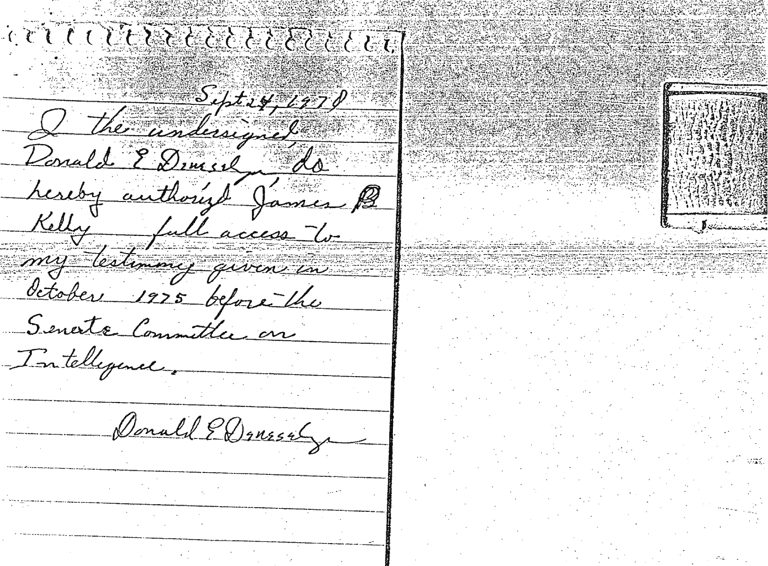 Sept 24, 1978
I the undersigned,
Donald E Deneselya, do
hereby authorize James B
Kelly full access to
my testimony given in
October 1975 before the
Senate Committee on
Intelligence.
Donald E Deneselya